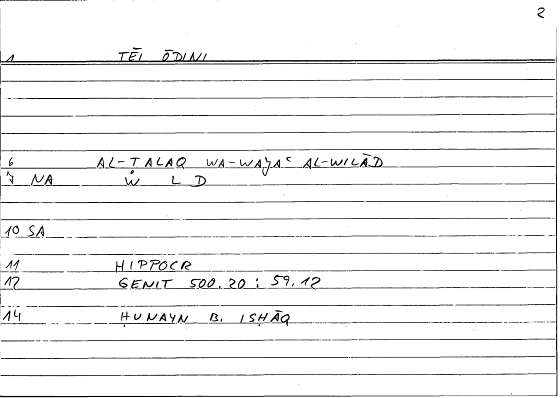 2
1 TĒI ŌDINI
6 AL-TALAQ WA-WAǦAʿ AL-WILĀD
7 NA W L D
10 SA
11 HIPPOCR
12 GENIT 500.20 : 59.12
14 ḤUNAYN B. ISḤĀQ